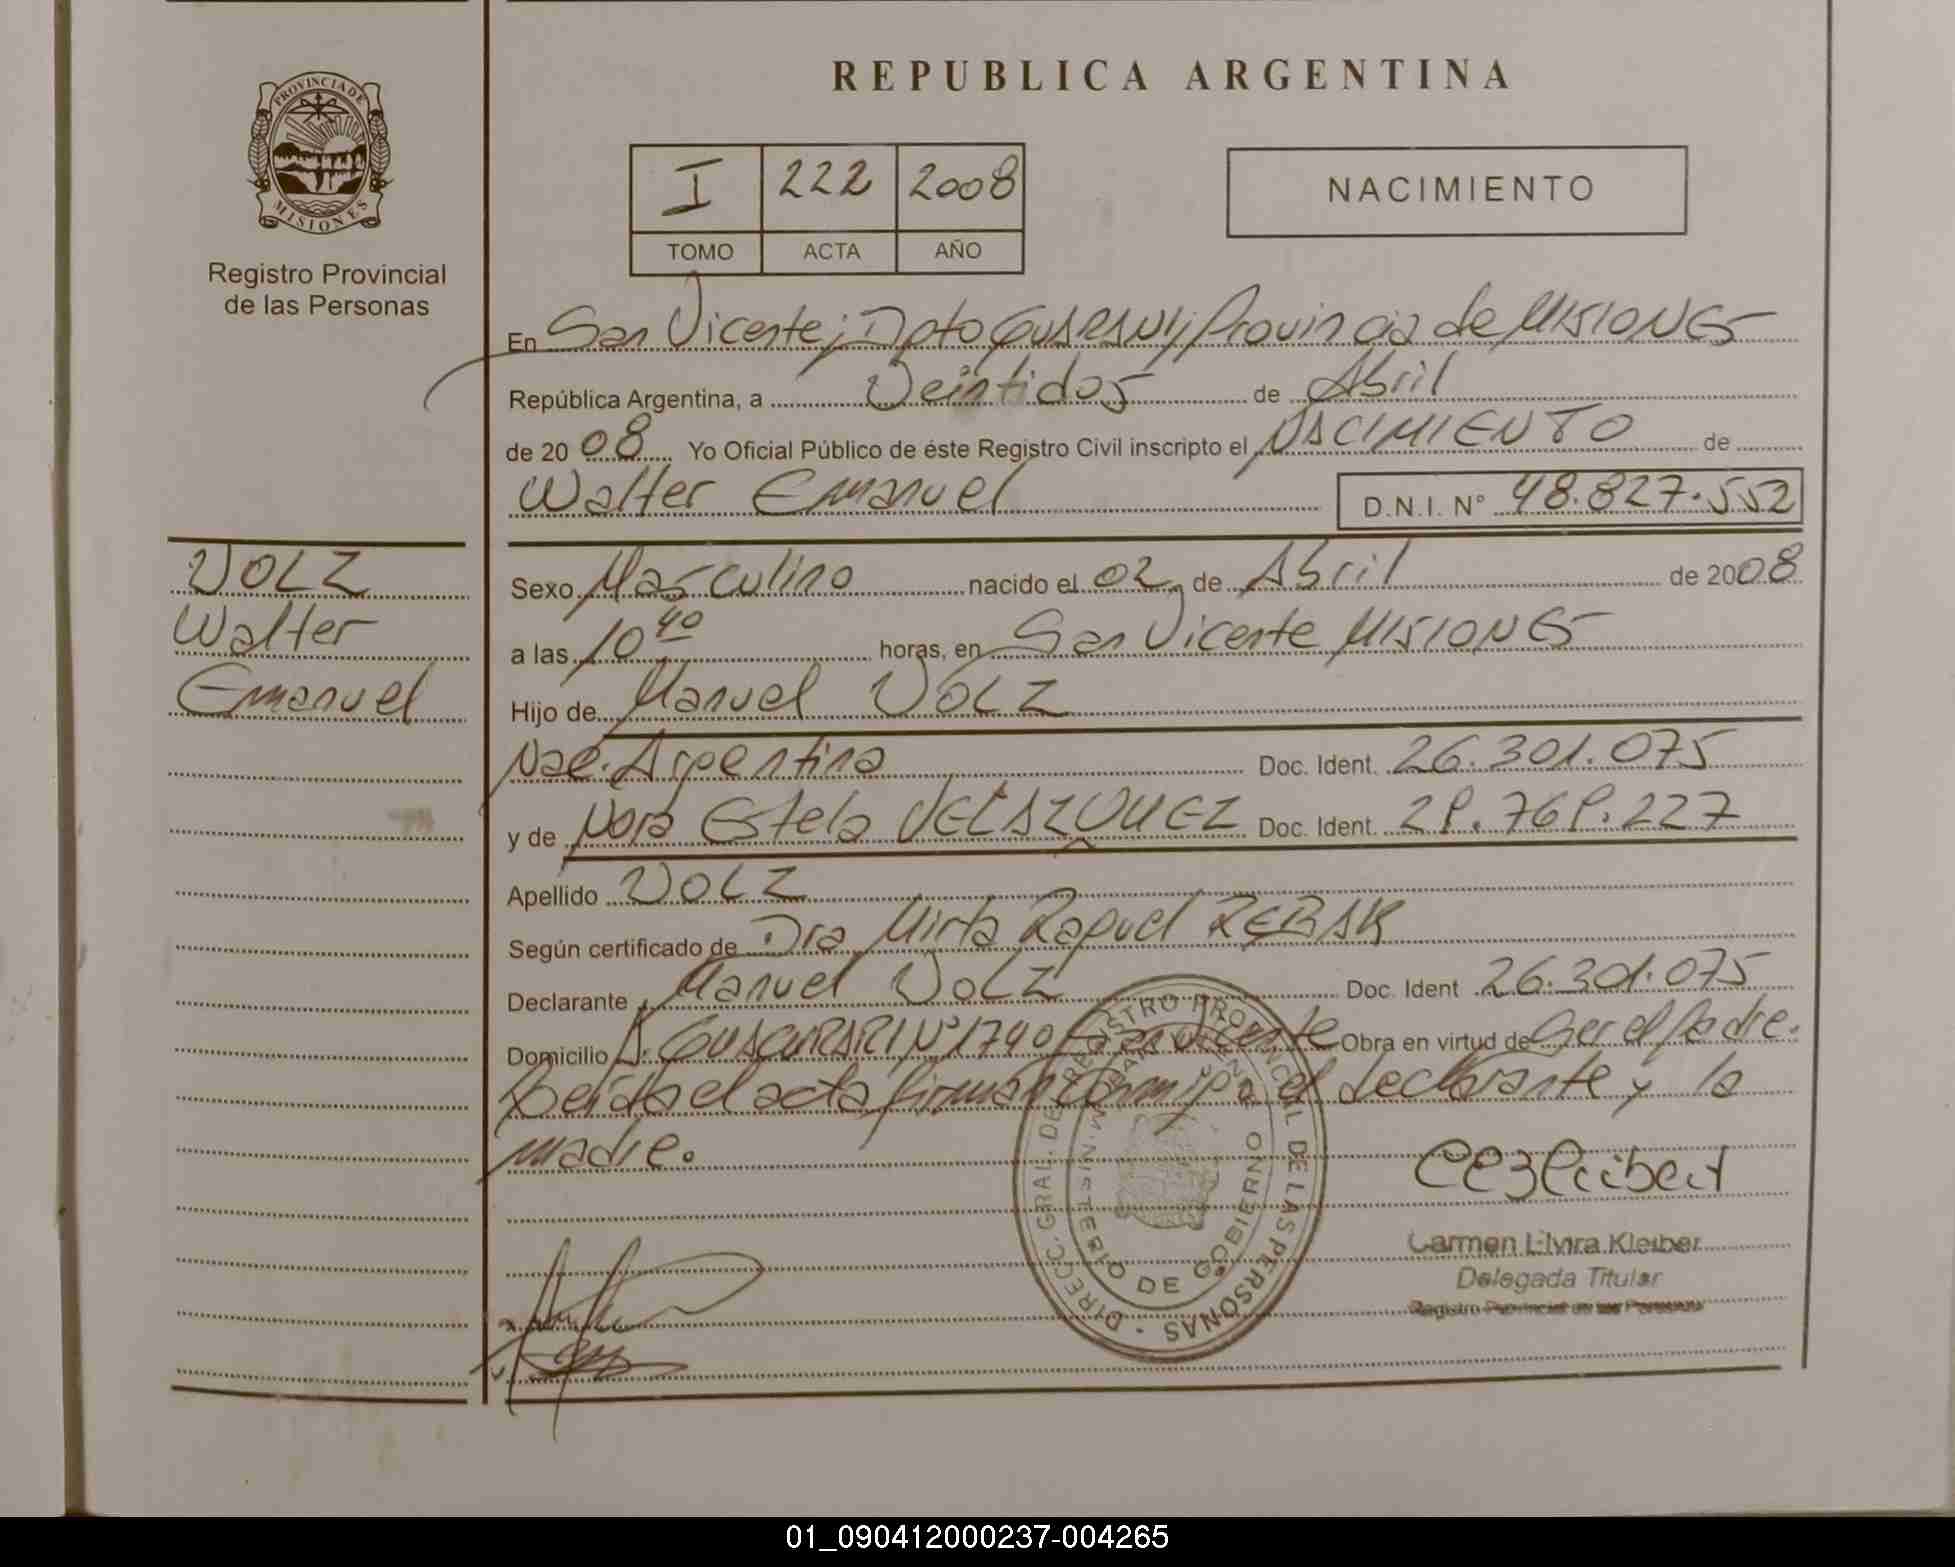 PROVINCIA DE
MISIONES
Registro Provincial
de las Personas
REPUBLICA ARGENTINA
I 222 2008
TOMO ACTA AÑO
NACIMIENTO
En San Vicente; Dpto GUARANI; Provincia de MISIONES
República Argentina, a Veintidos de Abril
de 2008 Yo Oficial Público de éste Registro Civil inscripto el NACIMIENTO de
Walter Emanuel D.N.I. N° 48.827.552
VOLZ
Walter
Emanuel
Sexo Masculino nacido el 02 de Abril de 2008
a las 10 40 horas, en San Vicente MISIONES
Hijo de Manuel VOLZ
Nac. Argentina Doc. Ident. 26.301.075
y de Nora Estela VELAZQUEZ Doc. Ident. 29.769.227
Apellido VOLZ
Según certificado de Dra Mirta Raquel REBAK
Declarante Manuel VOLZ Doc. Ident 26.301.075
Domicilio A. GUACURARI N° 1740 San Vicente Obra en virtud de Ser el padre.
Leída el acta firman conmigo el declarante y la
madre.
DIRECC. GRAL. DE REGISTRO PROVINCIAL DE LAS PERSONAS
MINISTERIO DE GOBIERNO
Carmen Elvira Kleiber
Delegada Titular
Registro Provincial de las Personas
01_090412000237-004265